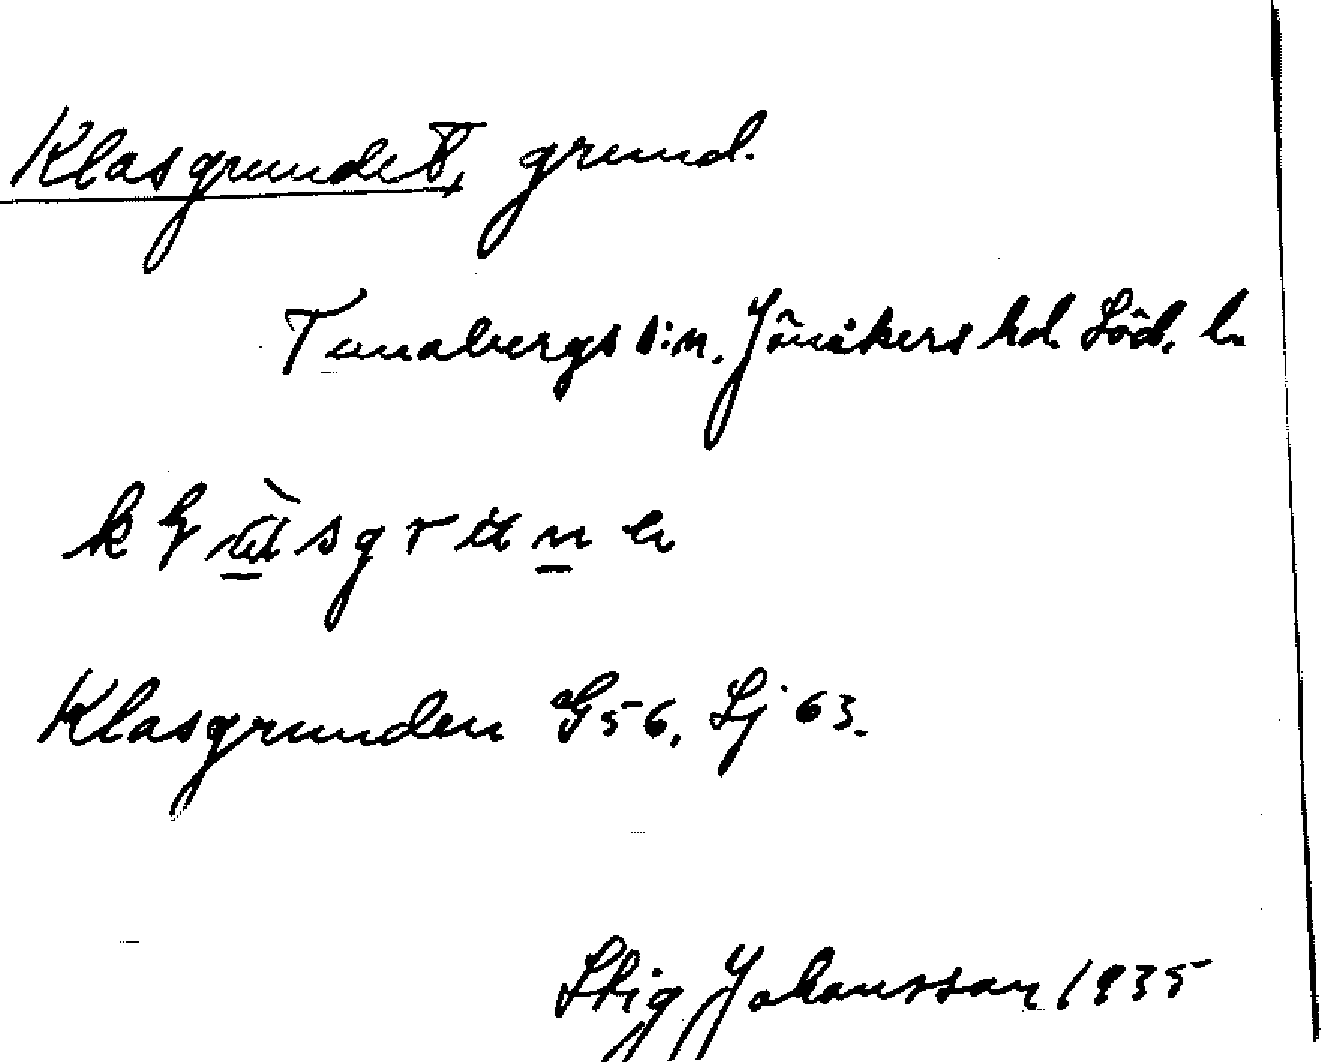 Klasgrundet, grund.
Tunabergs s:n. Jönåkers hd. Söd. l.
Klasgrunden G56, Sj 63.
Stig Johansson 1935